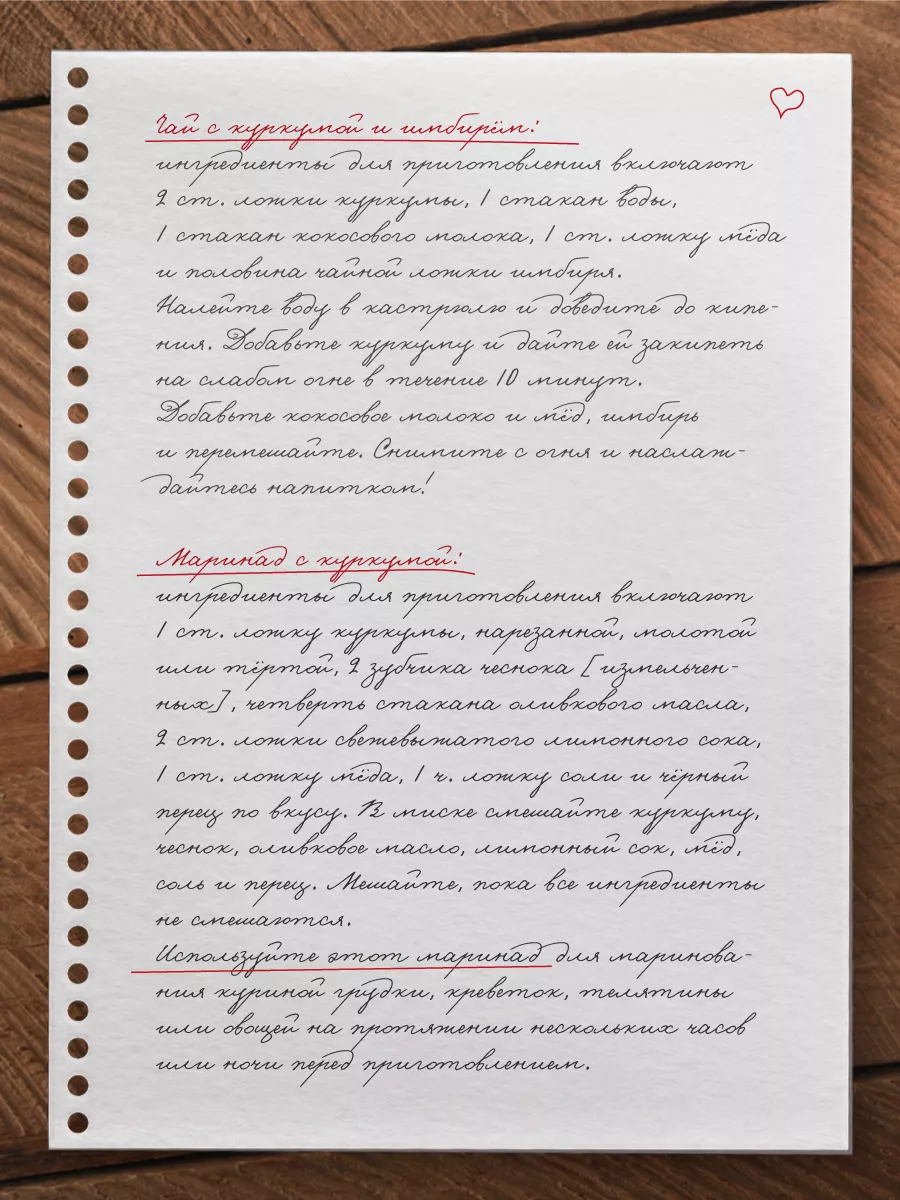 Чай с куркумой и имбирём:
ингредиенты для приготовления включают
2 ст. ложки куркумы, 1 стакан воды,
1 стакан кокосового молока, 1 ст. ложку мёда
и половина чайной ложки имбиря.
Налейте воду в кастрюлю и доведите до кипе-
ния. Добавьте куркуму и дайте ей закипеть
на слабом огне в течение 10 минут.
Добавьте кокосовое молоко и мёд, имбирь
и перемешайте. Снимите с огня и наслаж-
дайтесь напитком!
Маринад с куркумой:
ингредиенты для приготовления включают
1 ст. ложку куркумы, нарезанной, молотой
или тёртой, 2 зубчика чеснока [измельчен-
ных], четверть стакана оливкового масла,
2 ст. ложки свежевыжатого лимонного сока,
1 ст. ложку мёда, 1 ч. ложку соли и чёрный
перец по вкусу. В миске смешайте куркуму,
чеснок, оливковое масло, лимонный сок, мёд,
соль и перец. Мешайте, пока все ингредиенты
не смешаются.
Используйте этот маринад для маринова-
ния куриной грудки, креветок, телятины
или овощей на протяжении нескольких часов
или ночи перед приготовлением.